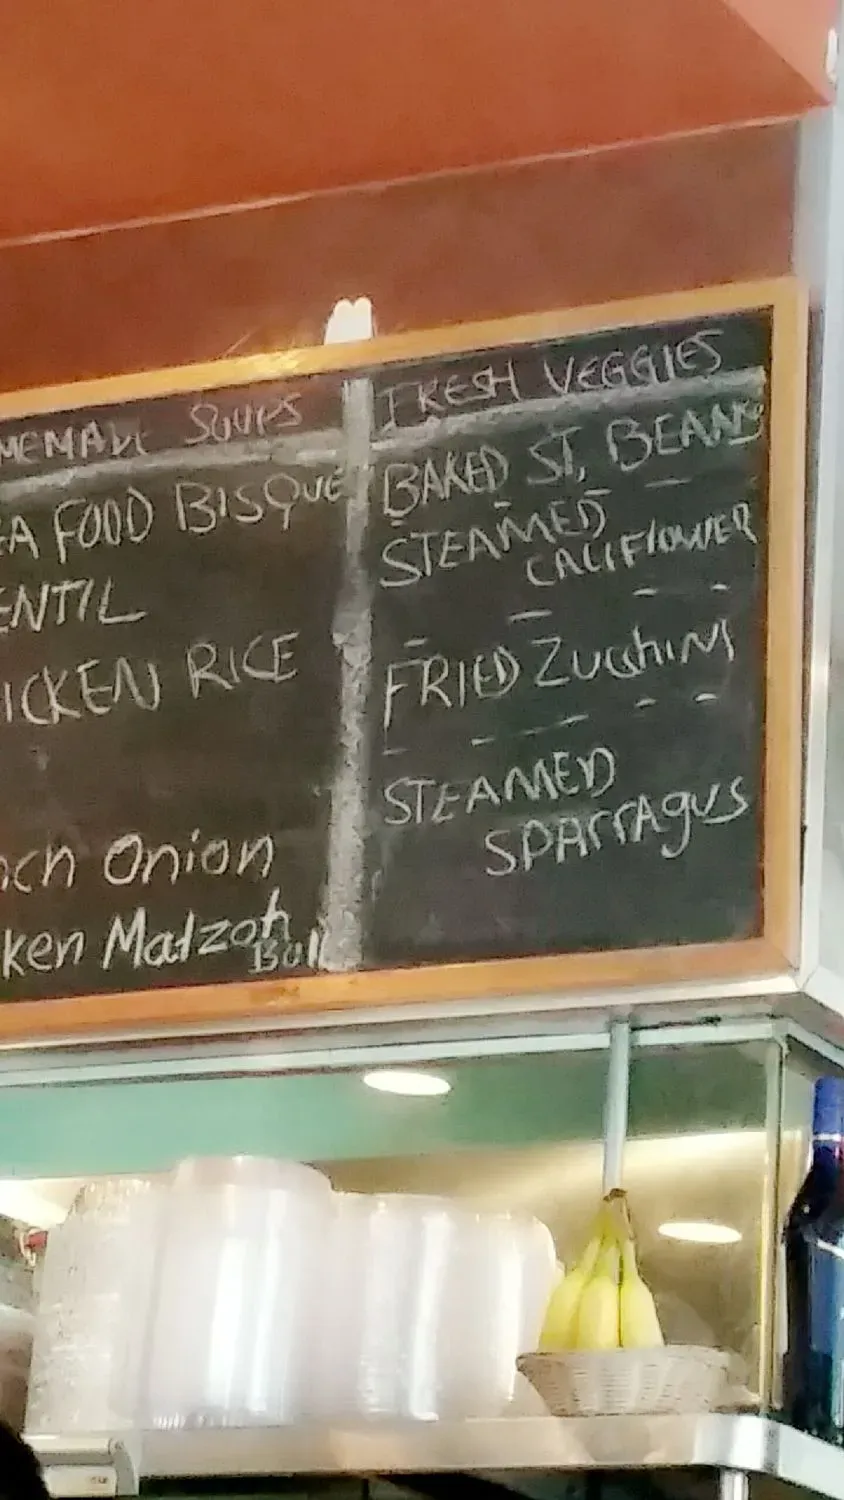 MEMADE SOUPS
EA FOOD BISQUE
ENTIL
ICKEN RICE
nch Onion
ken Matzoh
Ball
FRESH VEGGIES
BAKED ST. BEANS
STEAMED
CALIFLOWER
FRIED ZUCChINI
STEAMED
SPArrAgUS